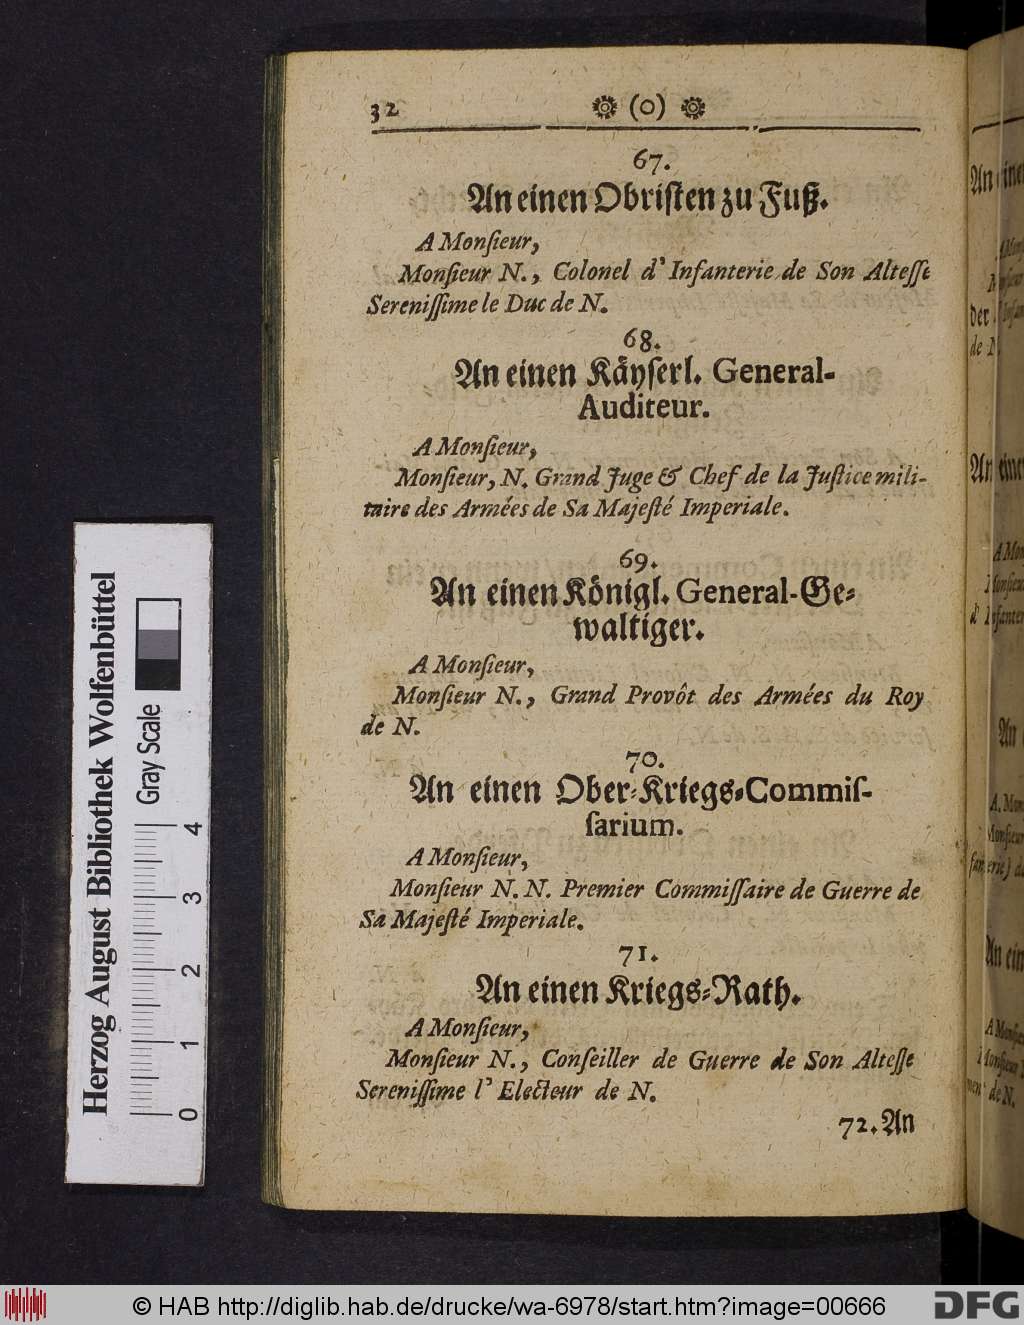 32 (o)
67.
An einen Obriſten zu Fuß.
A Monſieur,
Monſieur N., Colonel d' Infanterie de Son Alteſſe
Sereniſſime le Duc de N.
68.
An einen Kåyſerl. General-
Auditeur.
A Monſieur,
Monſieur, N. Grand Juge & Chef de la Juſtice mili-
taire des Armées de Sa Majeſté Imperiale.
69.
An einen Königl. General-Ge-
waltiger.
A Monſieur,
Monſieur N., Grand Provôt des Armées du Roy
de N.
70.
An einen Ober-Kriegs-Commiſ-
ſarium.
A Monſieur,
Monſieur N. N. Premier Commiſſaire de Guerre de
Sa Majeſté Imperiale.
71.
An einen Kriegs-Rath.
A Monſieur,
Monſieur N., Conſeiller de Guerre de Son Alteſſe
Sereniſſime l' Electeur de N.
72. An
Herzog August Bibliothek Wolfenbüttel
Gray Scale
0 1 2 3 4
© HAB http://diglib.hab.de/drucke/wa-6978/start.htm?image=00666
DFG